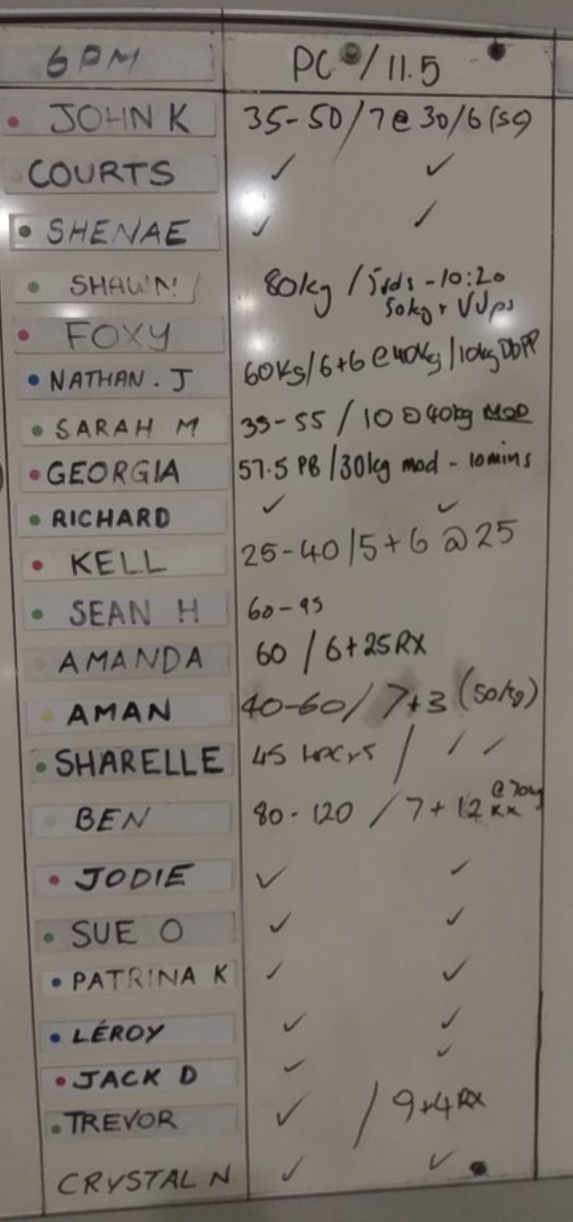 6PM PC / 11.5
JOHN K 35-50/7@30/6 (SG)
COURTS ✓ ✓
SHENAE ✓ ✓
SHAWN 80kg / 5rds - 10:20
50kg + VUps
FOXY
NATHAN. J 60KG/6+6@40Kg/10kg DBPP
SARAH M 35-55 / 10 @ 40kg MOD
GEORGIA 57.5 PB /30kg mod - 10mins
RICHARD ✓ ✓
KELL 25-40/5+6 @25
SEAN H 60-95
AMANDA 60 / 6+25 RX
AMAN 40-60/ 7+3 (50kg)
SHARELLE 45 / ✓ ✓
BEN 80-120 / 7+12 RX @70kg
JODIE ✓ ✓
SUE O ✓ ✓
PATRINA K ✓ ✓
LEROY ✓ ✓
JACK D ✓ ✓
TREVOR ✓ / 9+4 RX
CRYSTAL N ✓ ✓